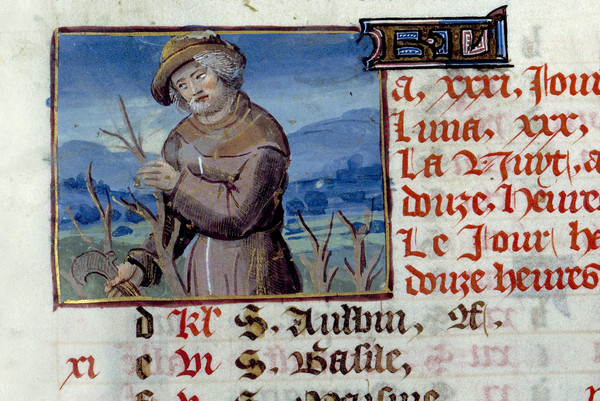 a, xxxi, Jour
Luna, xxx,
La Nuyt, a
douze, Heures
Le Jour ha
douze heures
d Kl S. Aulbin,
xi e vi S. Basile,
f v S.